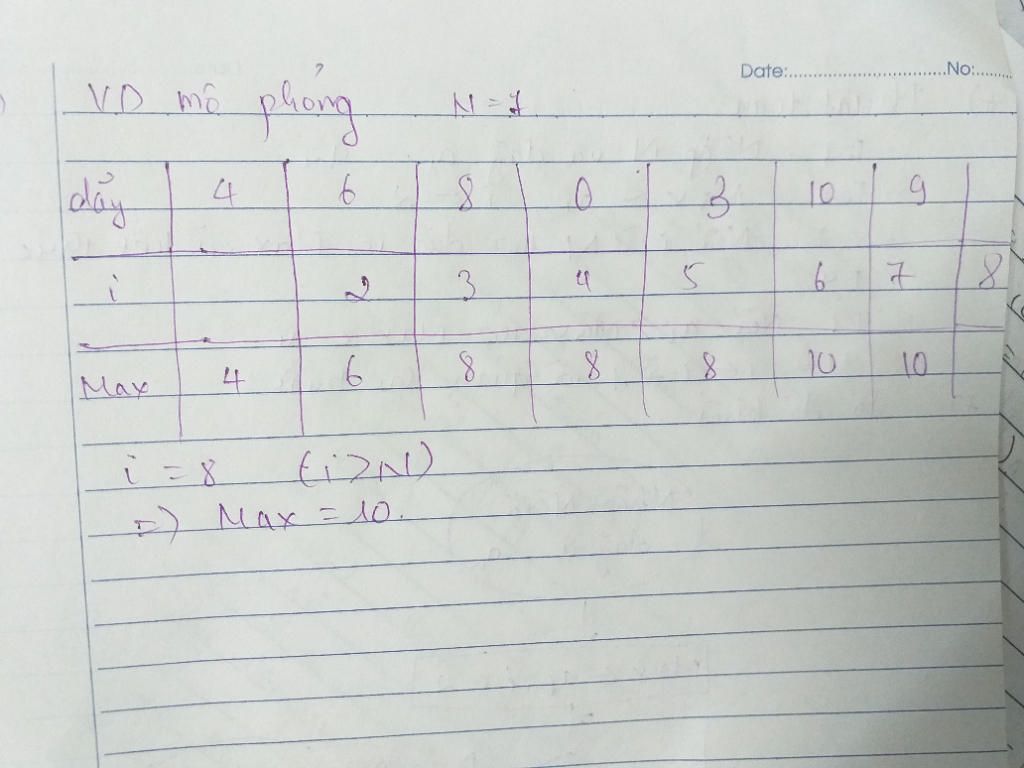 Date:..............................No:.........
VD mô phỏng N = 7
dãy 4 6 8 0 3 10 9
i 2 3 4 5 6 7 8
Max 4 6 8 8 8 10 10
i = 8 (i > N)
=> Max = 10.